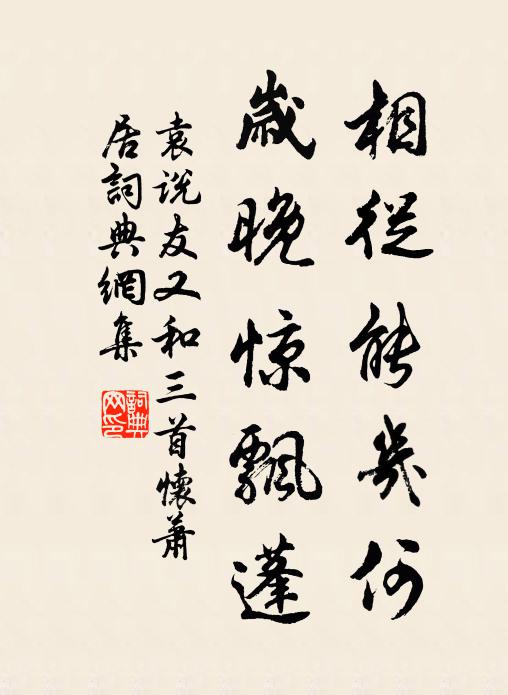 相從能幾何
歲晚惊飄蓬
袁说友又和三首懷蕭
居詞典網集
詞典网印